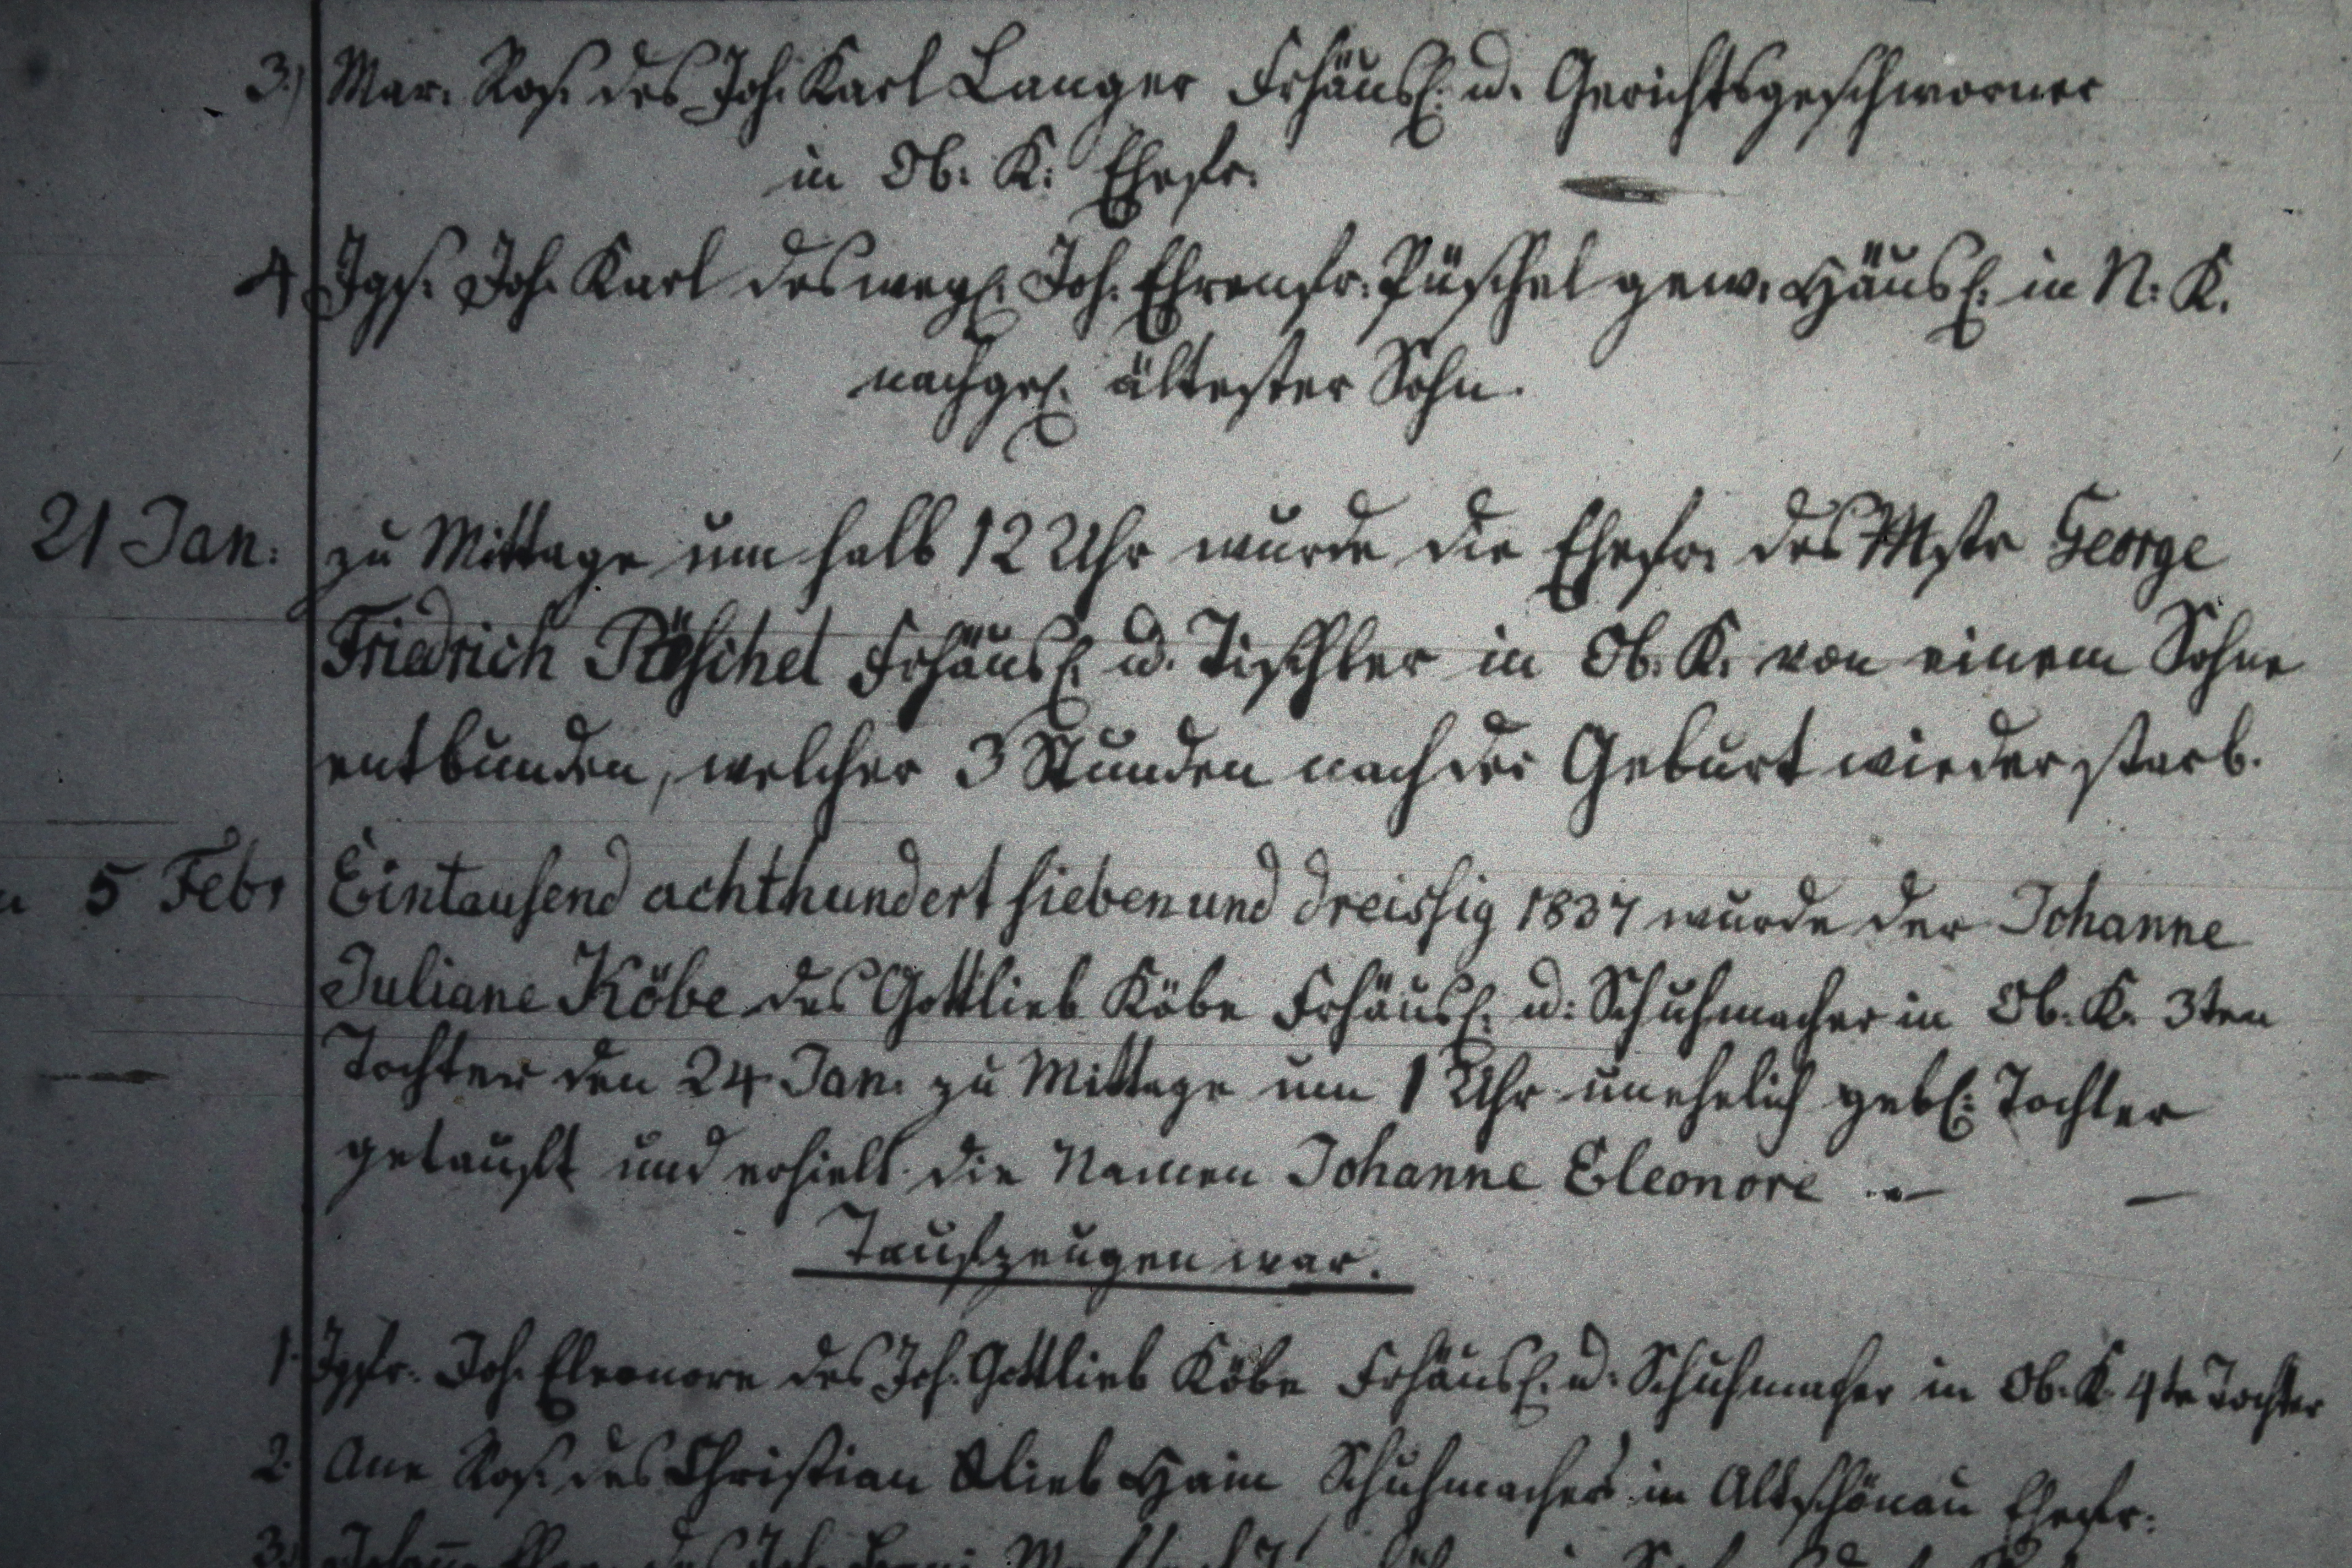 3.) Mar. Ros. des Joh. Karl Langer Frhäusl. u. Gerichtsgeschworner
in Ob. K. Ehefr.
4 Jgs. Joh. Karl des weyl. Joh. Ehrenfr. Püschel gew. Häusl. in N. K.
nachgel. ältester Sohn.
21 Jan. zu Mittage um halb 12 Uhr wurde die Ehefr. des Mstr George
Friedrich Püschel Frhäusl. u. Tischler in Ob. K. von einem Sohne
entbunden, welcher 3 Stunden nach der Geburt wieder starb.
5 Febr Eintausend achthundert sieben und dreissig 1837 wurde der Johanne
Juliane Köbe des Gottlieb Köbe Frhäusl. u. Schuhmacher in Ob. K. 3ten
Tochter den 24 Jan. zu Mittage um 1 Uhr unehelich gebl. Tochter
getauft und erhielt die Namen Johanne Eleonore
Taufzeugen war.
1. Jgfr. Joh. Eleonore des Joh. Gottlieb Köbe Frhäusl. u. Schuhmacher in Ob. K. 4te Tochter
2. Ane Ros. des Christian Glieb Hain Schuhmachers in Altschönau Ehefr.
3.)